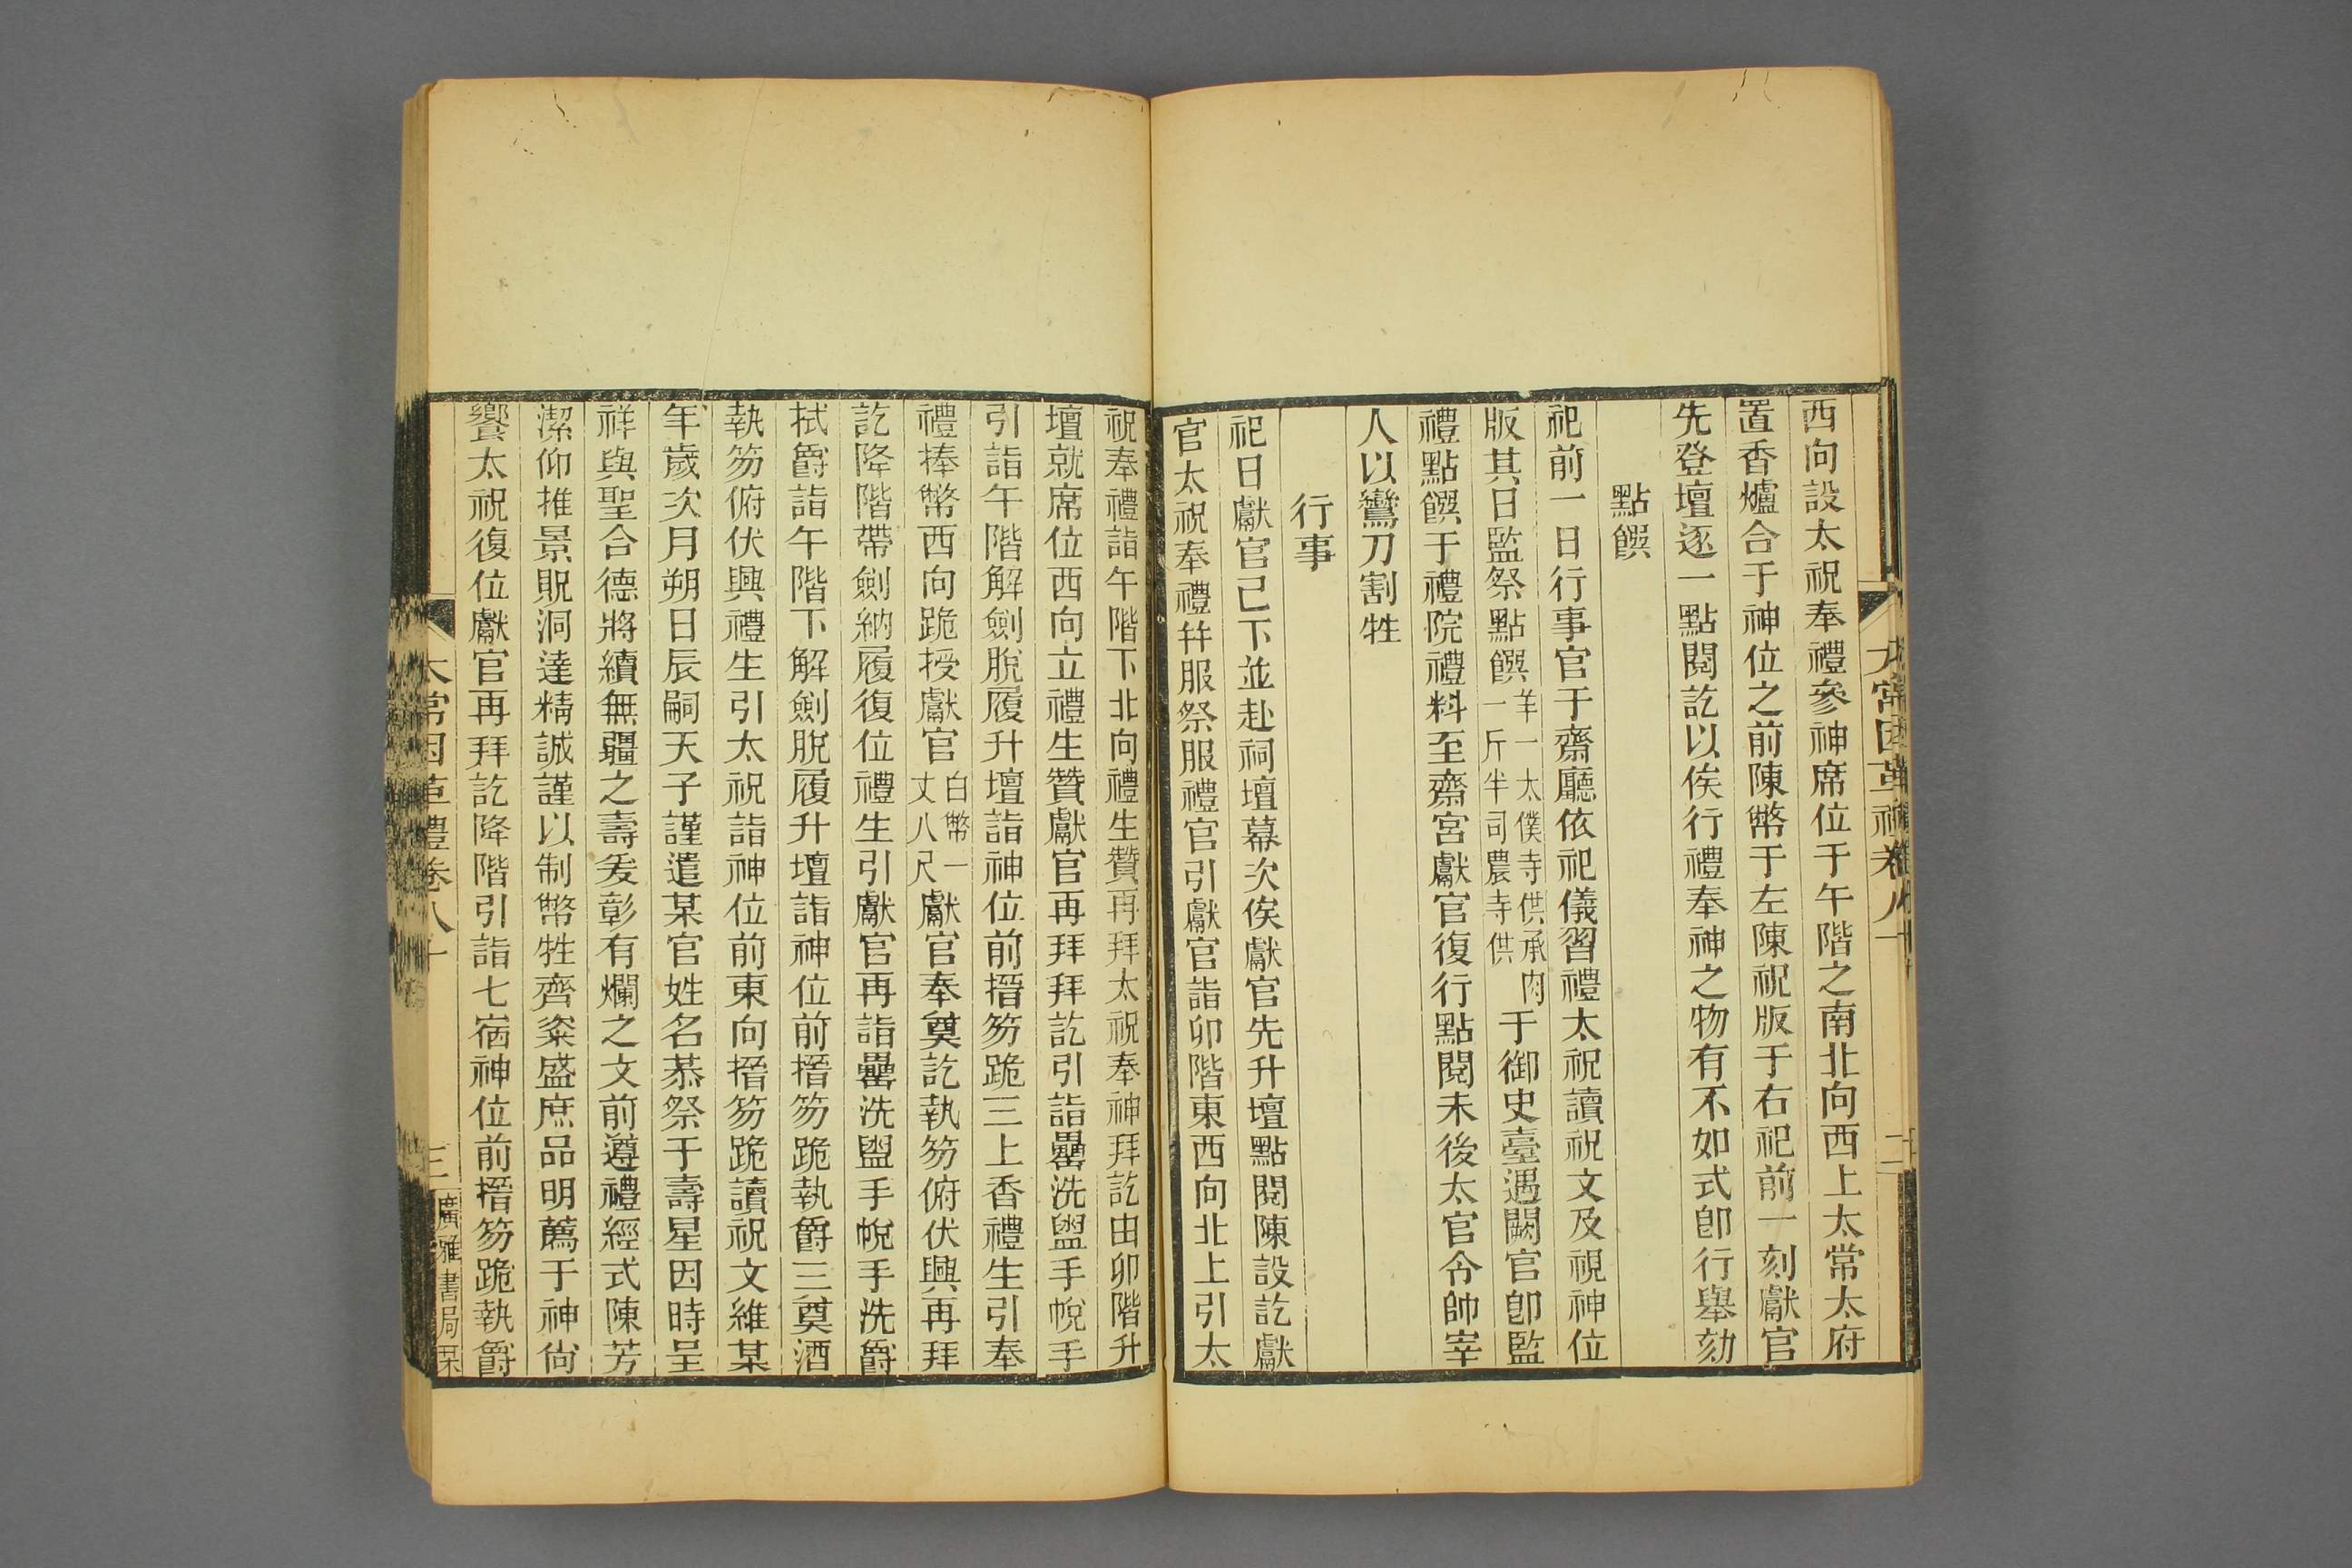 西向設太祝奉禮參神席位于午階之南北向西上太常太府
置香爐合于神位之前陳幣于左陳祝版于右祀前一刻獻官
先登壇逐一點閱訖以俟行禮奉神之物有不如式卽行舉劾
點饌
祀前一日行事官于齋廳依祀儀習禮太祝讀祝文及視神位
版其日監祭點饌羊一太僕寺供承肉一斤半司農寺供于御史臺遇闕官卽監
禮點饌于禮院禮料至齋宮獻官復行點閱未後太官令帥宰
人以鸞刀割牲
行事
祀日獻官已下並赴祠壇幕次俟獻官先升壇點閱陳設訖獻
官太祝奉禮幷服祭服禮官引獻官詣卯階東西向北上引太
祝奉禮詣午階下北向禮生贊再拜太祝奉神拜訖由卯階升
壇就席位西向立禮生贊獻官再拜拜訖引詣罍洗盥手帨手
引詣午階解劍脫履升壇詣神位前搢笏跪三上香禮生引奉
禮捧幣西向跪授獻官白幣一丈八尺獻官奉奠訖執笏俯伏興再拜
訖降階帶劍納履復位禮生引獻官再詣罍洗盥手帨手洗爵
拭爵詣午階下解劍脫履升壇詣神位前搢笏跪執爵三奠酒
執笏俯伏興禮生引太祝詣神位前東向搢笏跪讀祝文維某
年歲次月朔日辰嗣天子謹遣某官姓名恭祭于壽星因時呈
祥與聖合德將續無疆之壽爰彰有爛之文前遵禮經式陳芳
潔仰推景貺洞達精誠謹以制幣牲齊粢盛庶品明薦于神尙
饗太祝復位獻官再拜訖降階引詣七宿神位前搢笏跪執爵
太常因革禮卷八十
三
廣雅書局栞